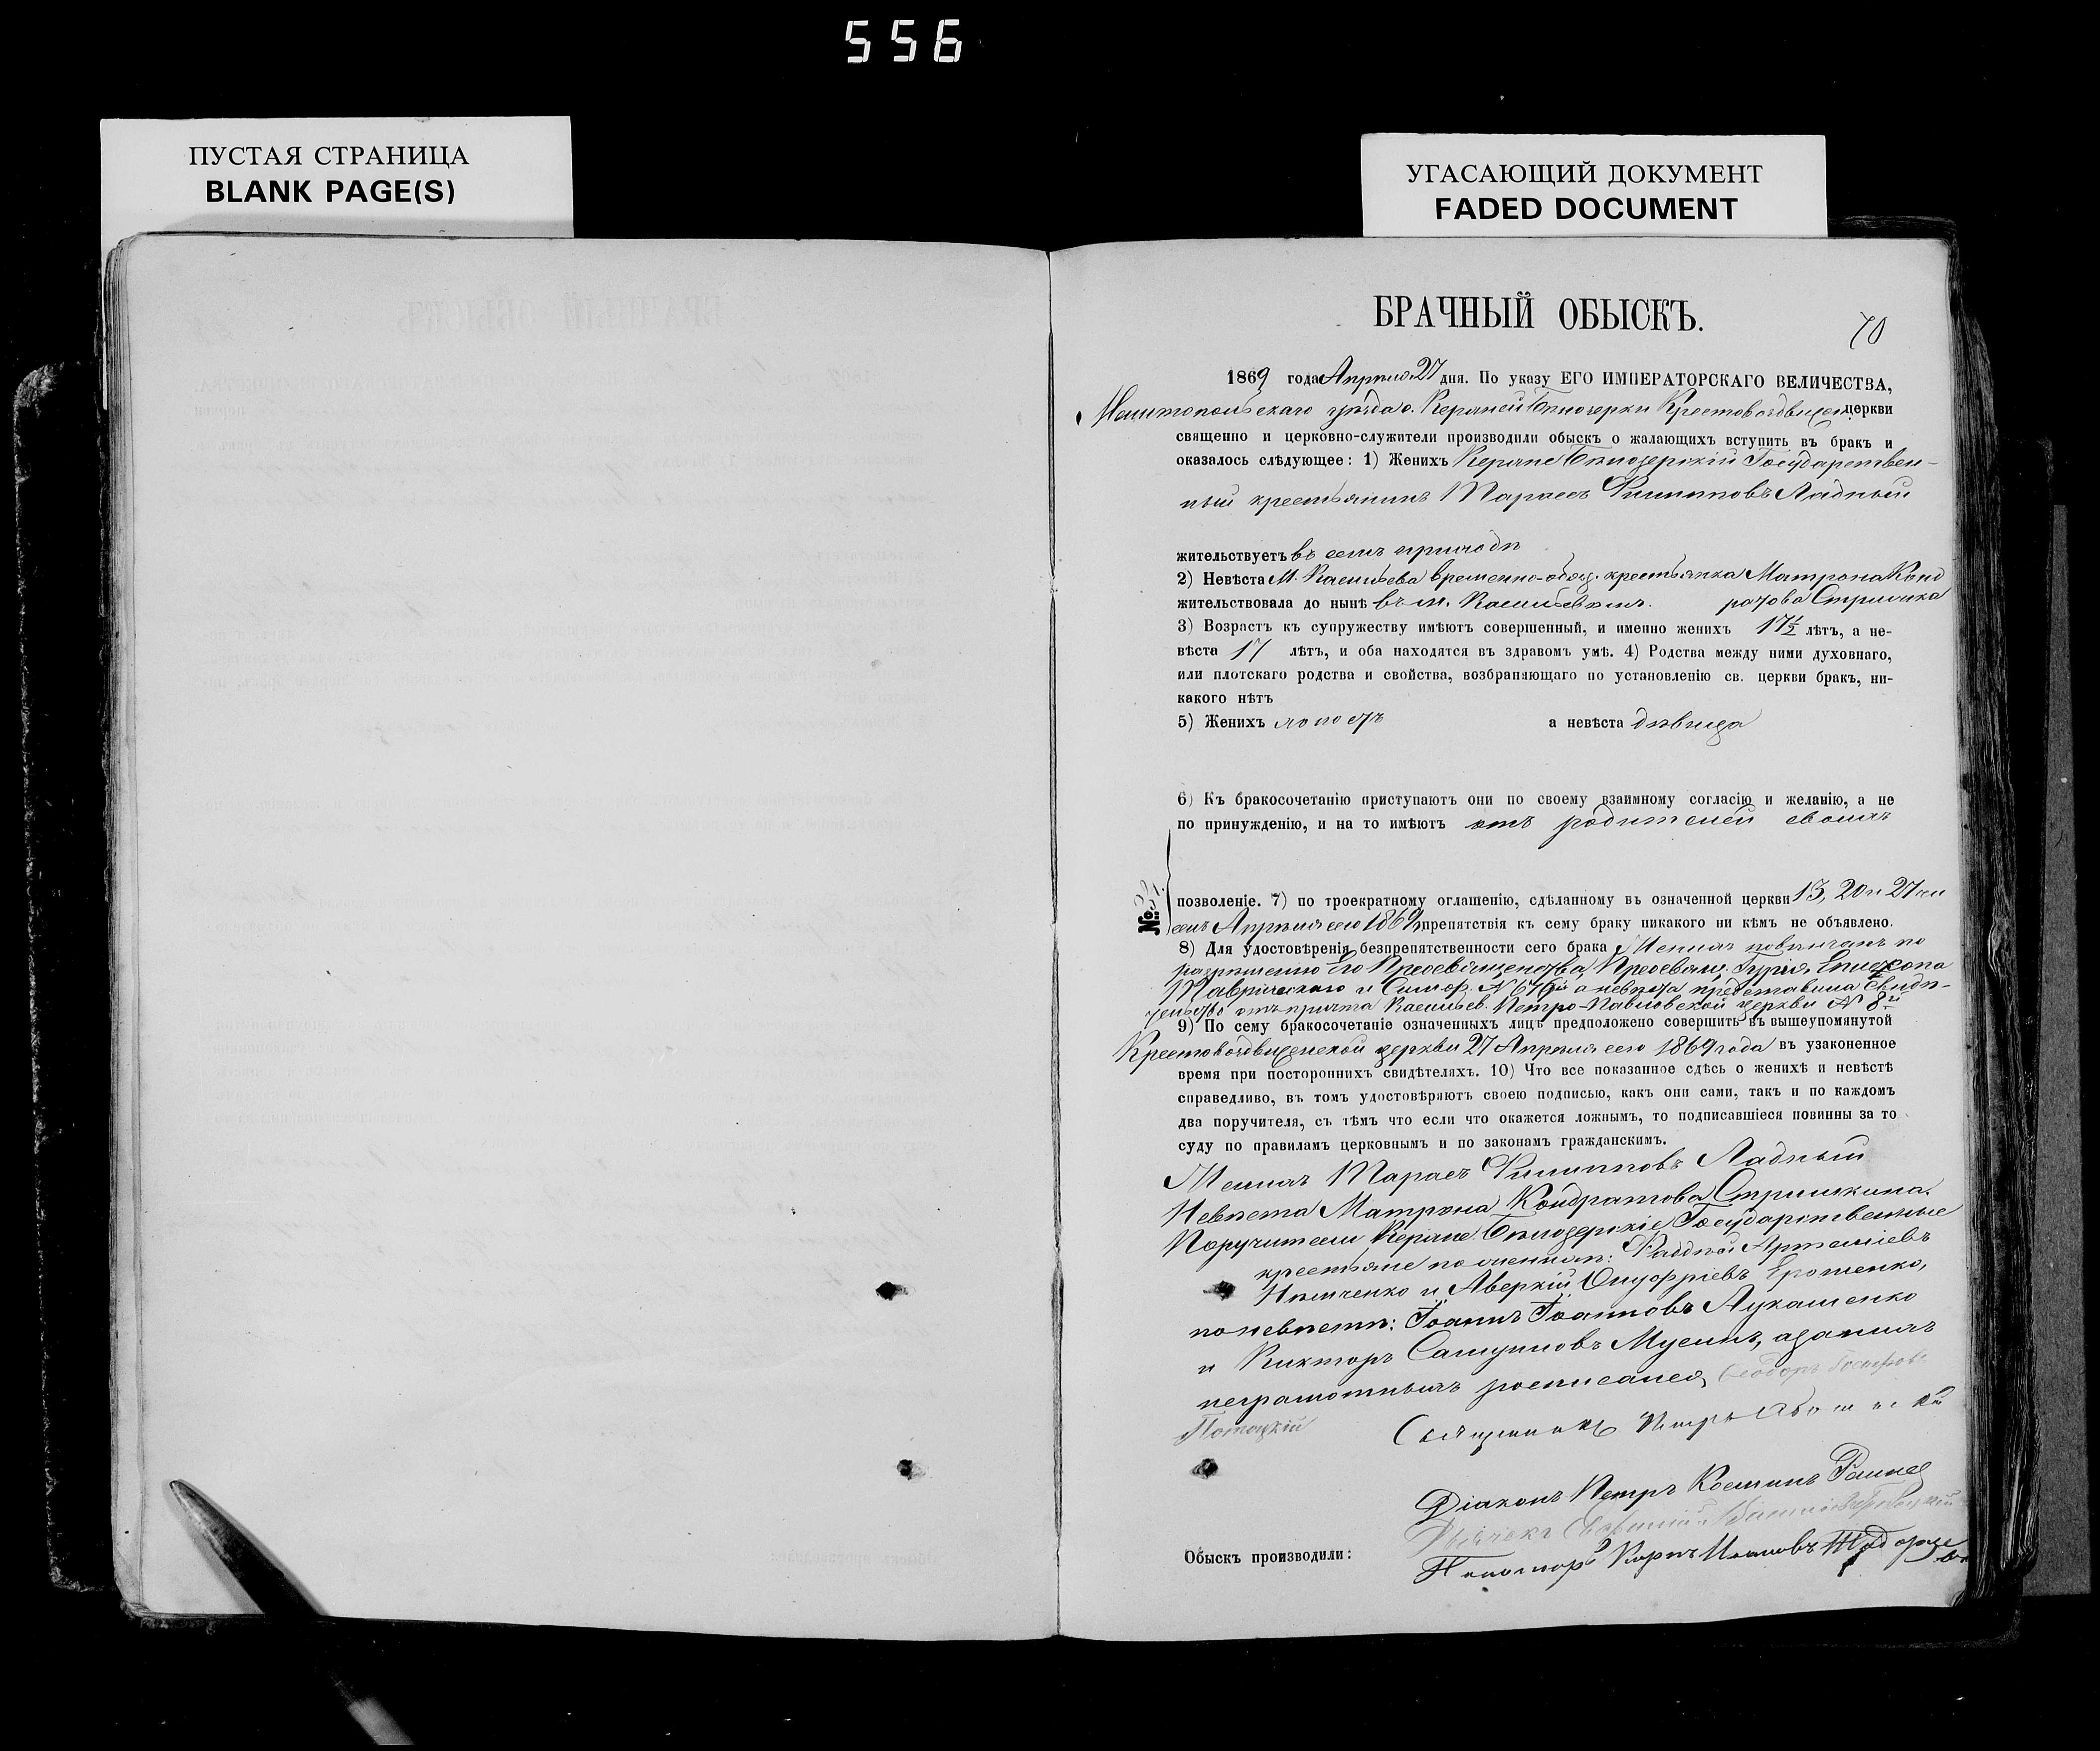 556
ПУСТАЯ СТРАНИЦА
BLANK PAGE(S)
УГАСАЮЩИЙ ДОКУМЕНТ
FADED DOCUMENT
БРАЧНЫЙ ОБЫСКЪ.
70
1869 года Апрѣля 27 дня. По указу ЕГО ИМПЕРАТОРСКАГО ВЕЛИЧЕСТВА,
Мелитопольскаго уѣзда с. Верхней Бѣлозерки Крестовоздвижен. церкви
священно и церковно-служители производили обыскъ о жалающихъ вступить въ бракъ и
оказалось слѣдующее: 1) Женихъ Верхне Бѣлозерскій Государствен-
ный крестьянинъ Тарасъ Филипповъ Ладный
жительствуетъ въ семъ приходѣ
2) Невѣста М. Васильева временно-обяз. крестьянка Матрона Конд
жительствовала до нынѣ въ м. Васильевкѣ. ратова
3) Возрастъ къ супружеству имѣютъ совершенный, и именно женихъ 17½ лѣтъ, а не-
вѣста 17 лѣтъ, и оба находятся въ здравомъ умѣ. 4) Родства между ними духовнаго,
или плотскаго родства и свойства, возбраняющаго по установленію св. церкви бракъ, ни-
какого нѣтъ
5) Женихъ холостъ а невѣста дѣвица
6) Къ бракосочетанію приступаютъ они по своему взаимному согласію и желанію, а не
по принужденію, и на то имѣютъ отъ родителей своихъ
№
позволеніе. 7) по троекратному оглашенію, сдѣланному въ означенной церкви 13, 20 и 27 чи
слъ Апрѣля сего 1869 препятствія къ сему браку никакого ни кѣмъ не объявлено.
8) Для удостовѣренія безпрепятственности сего брака Женихъ повѣнчанъ по
разрѣшенію Его Преосвященства, Преосвящ. Гурія, Епископа
Таврическаго и Симфер. № 676й а невѣста представила свидѣ-
тельство отъ причта Васильев. Петро-Павловской церкви № 8й
9) По сему бракосочетаніе означенныхъ лицъ предположено совершить въ вышеупомянутой
Крестовоздвиженской церкви 27 Апрѣля сего 1869 года въ узаконенное
время при постороннихъ свидѣтеляхъ. 10) Что все показанное сдѣсь о женихѣ и невѣстѣ
справедливо, въ томъ удостовѣряютъ своею подписью, какъ они сами, такъ и по каждомъ
два поручителя, съ тѣмъ что если что окажется ложнымъ, то подписавшіеся повинны за то
суду по правиламъ церковнымъ и по законамъ гражданскимъ.
Женихъ Тарасъ Филипповъ Ладный
Невѣста Матрона Кондратова
Поручители Верхне Бѣлозерскіе Государственные
крестьяне по женихѣ: Фаддей Артеміевъ
Нѣмченко и Аверкій Онуфріевъ Ерошенко,
по невѣстѣ: Іоаннъ Іоанновъ Лукашенко
и Викторъ Самуиловъ Мусинъ, а за нихъ
неграмотныхъ росписался Ѳеодоръ
Потоцкій
Священникъ Петръ
Діаконъ Петръ Косминъ
Обыскъ производили:
Пономарь Карпъ Ивановъ